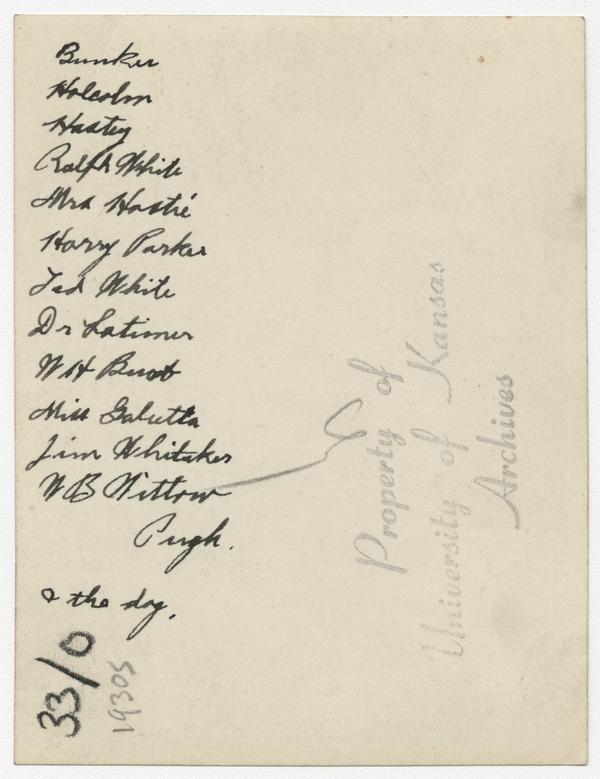 Bunker
Holcolm
Hastey
Ralph White
Mrs Hastie
Harry Parker
Ted White
Dr Latimer
W H Burt
Miss
Jim Whitaker
W B Wittow
Pugh.
& the dog.
33/0
1930s
Property of
University of Kansas
Archives